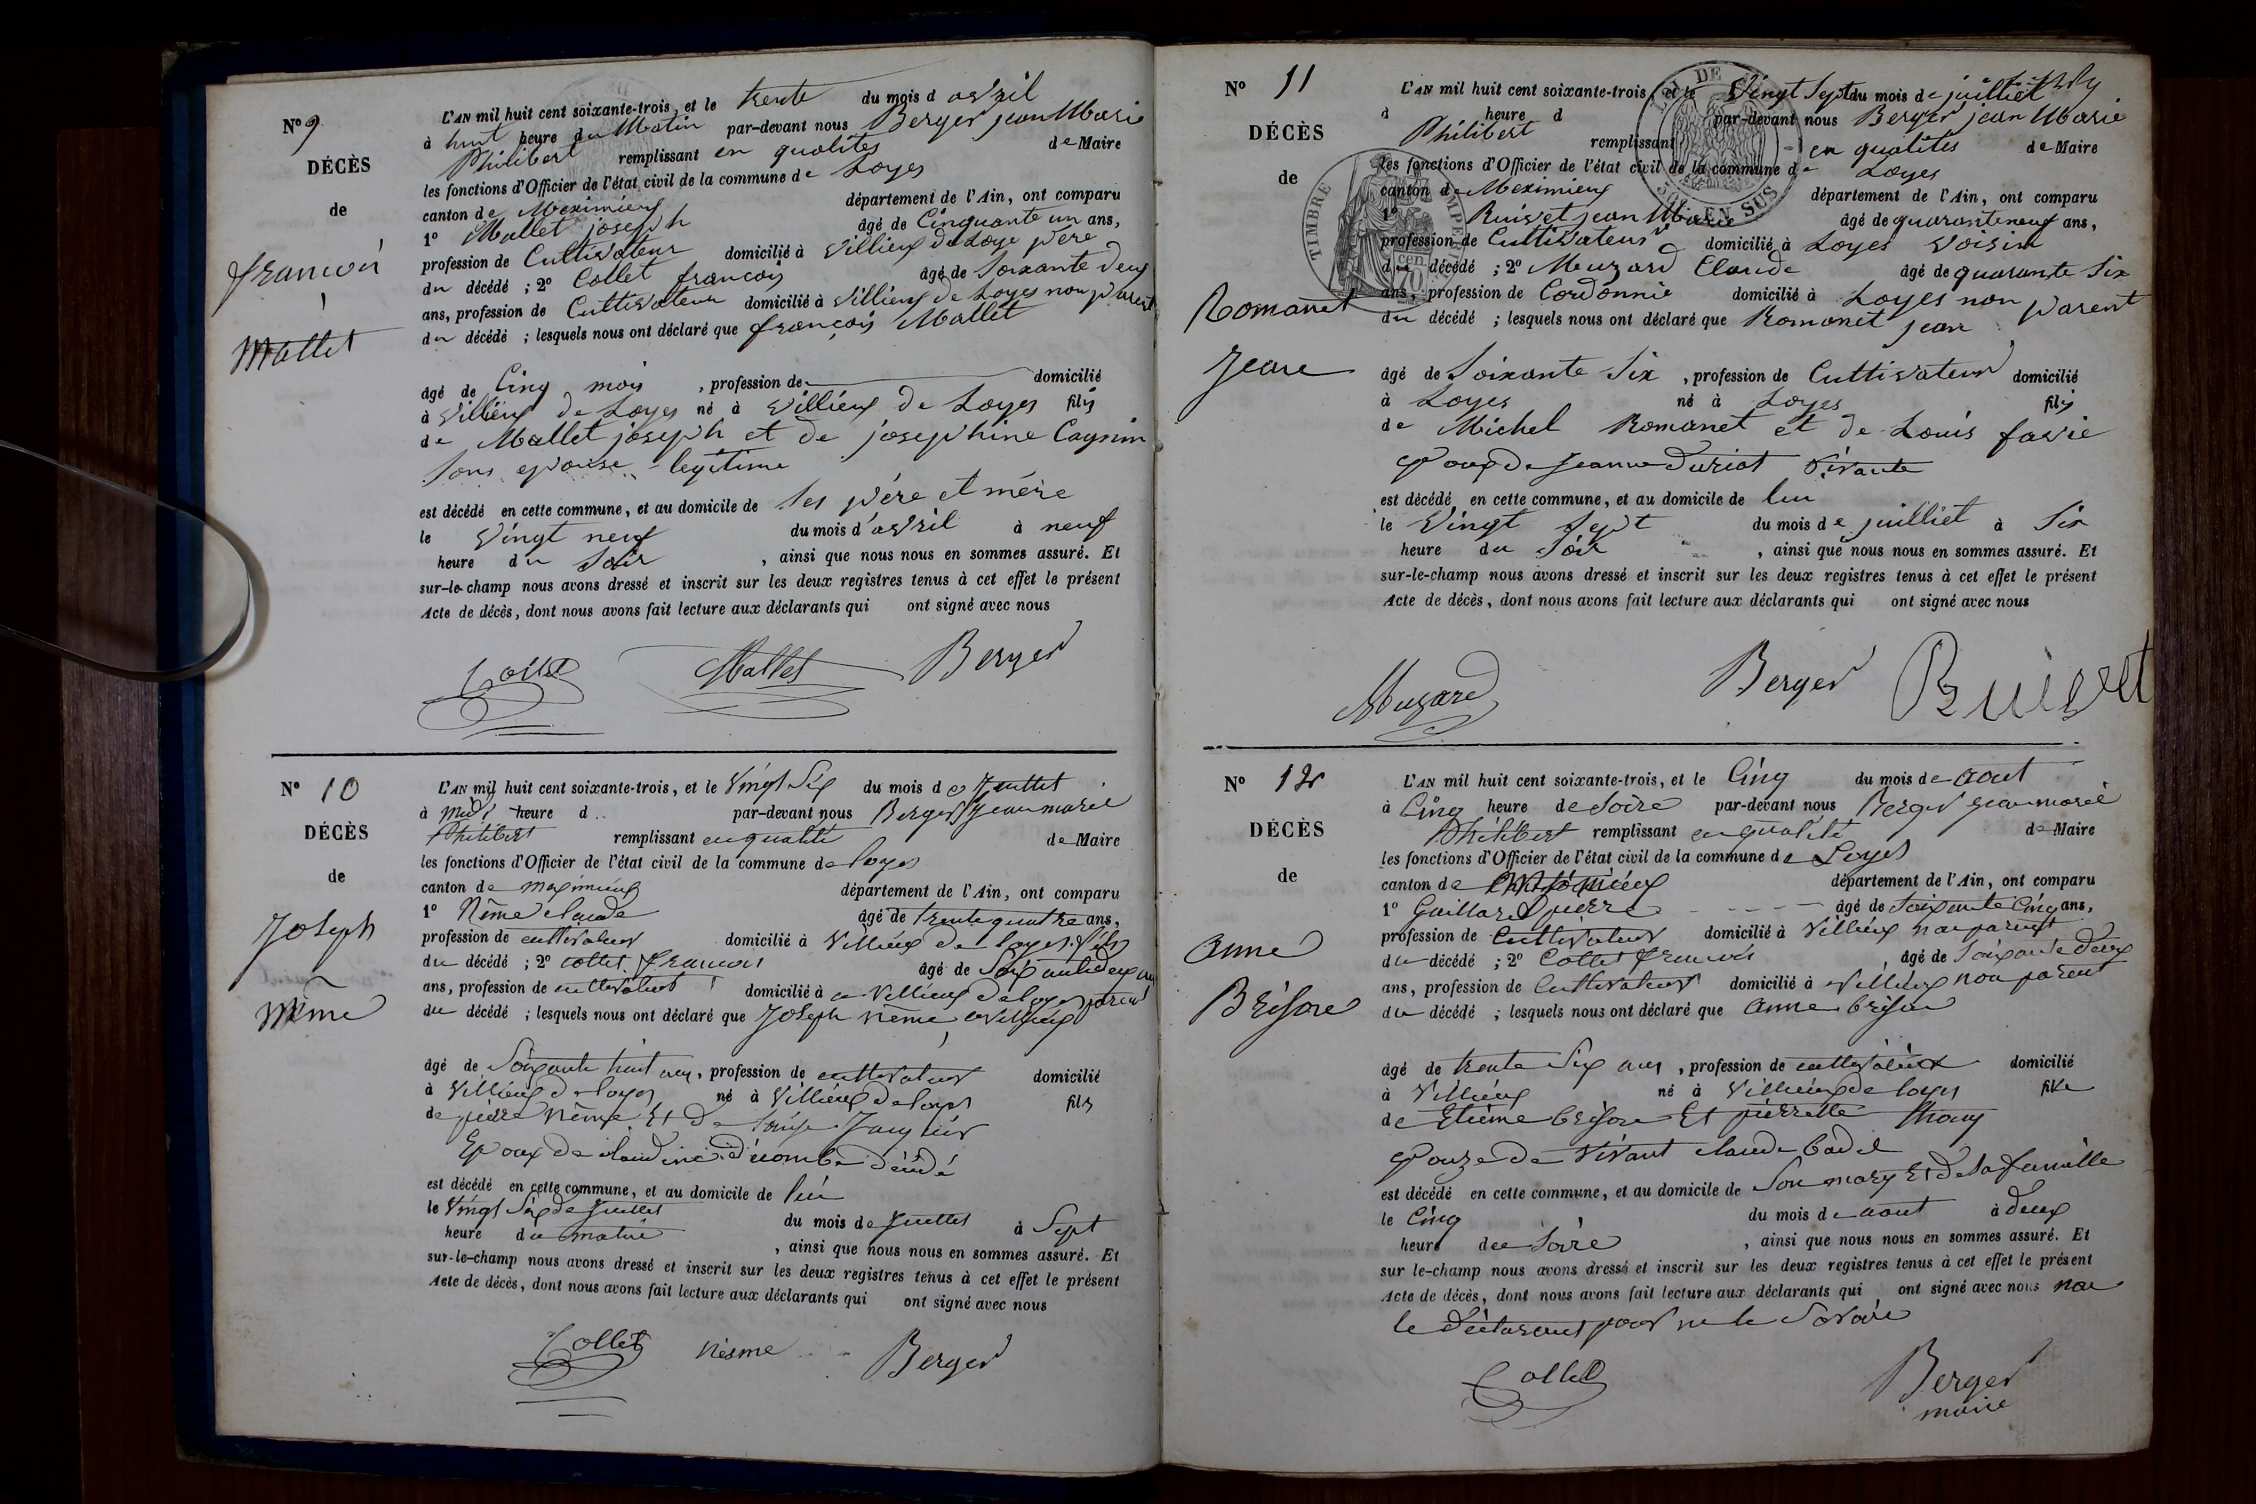 N° 9
DÉCÈS
de
françois
Mallet
L'AN mil huit cent soixante-trois, et le trente du mois d avril
à huit heure du Matin par-devant nous Berger jean Marie
Philibert remplissant en qualités de Maire
les fonctions d'Officier de l'état civil de la commune de Loyes
canton de Meximieux département de l'Ain, ont comparu
1° Mallet joseph âgé de Cinquante un ans,
profession de Cultivateur domicilié à Villieux de Loye père
du décédé ; 2° Collet françois âgé de Soixante deux
ans, profession de Cultivateur domicilié à Villieux de Loyes non parent
du décédé ; lesquels nous ont déclaré que françois Mallet
âgé de Cinq mois , profession de domicilié
à Villieux de Loyes né à Villieux de Loyes fils
de Mallet joseph et de josephine Cagnin
Sons epouse legitime
est décédé en cette commune, et au domicile de Ses père et mère
le Vingt neuf du mois d'avril à neuf
heure du Soir , ainsi que nous nous en sommes assuré. Et
sur-le-champ nous avons dressé et inscrit sur les deux registres tenus à cet effet le présent
Acte de décès, dont nous avons fait lecture aux déclarants qui ont signé avec nous
Collet Mallet Berger
N° 10
DÉCÈS
de
Joseph
Nême
L'AN mil huit cent soixante-trois, et le Vingt Six du mois de Juillet
à midi heure d par-devant nous Berger Jean marie
Philibert remplissant en qualité de Maire
les fonctions d'Officier de l'état civil de la commune de loyes
canton de meximieux département de l'Ain, ont comparu
1° Nême claude âgé de trente quatre ans,
profession de cultivateur domicilié à Villieux de loyes fils
du décédé ; 2° collet francois âgé de Soixante deux ans
ans, profession de cultivateur domicilié à a Villieux de loyes parent
du décédé ; lesquels nous ont déclaré que Joseph Nême a Villieux
âgé de Soixante huit ans, profession de cultivateur domicilié
à Villieux de loyes né à Villieux de loyes fils
de pierre Nême Et De
Epoux de claudine décombe décédé
est décédé en cette commune, et au domicile de lui
le Vingt Six de Juillet du mois de Juillet à Sept
heure du matin , ainsi que nous nous en sommes assuré. Et
sur-le-champ nous avons dressé et inscrit sur les deux registres tenus à cet effet le présent
Acte de décès, dont nous avons fait lecture aux déclarants qui ont signé avec nous
Collet Nesme Berger
N° 11
DÉCÈS
de
Romanet
Jean
L'AN mil huit cent soixante-trois, et le Vingt Sept du mois de juilliet
à heure d par-devant nous Berger jean Marie
Philibert remplissant en qualités de Maire
les fonctions d'Officier de l'état civil de la commune de Loyes
canton de Meximieux département de l'Ain, ont comparu
1° Ruivet jean Marie âgé de quarante neuf ans,
profession de Cultivateur domicilié à Loyes Voisin
du décédé ; 2° Meuzard Claude âgé de quarante Six
ans, profession de Cordonnie domicilié à Loyes non parent
du décédé ; lesquels nous ont déclaré que Romanet jean
âgé de Soixante Six , profession de Cultivateur domicilié
à Loyes né à Loyes fils
de Michel Romanet et de Louis favie
Epoux de Jeanne Duriat Vivante
est décédé en cette commune, et au domicile de lui
le Vingt Sept du mois de juilliet à Six
heure du Soir , ainsi que nous nous en sommes assuré. Et
sur-le-champ nous avons dressé et inscrit sur les deux registres tenus à cet effet le présent
Acte de décès, dont nous avons fait lecture aux déclarants qui ont signé avec nous
Muzard Berger Ruivet
TIMBRE IMPERIAL
N° 12
DÉCÈS
de
anne
Brison
L'AN mil huit cent soixante-trois, et le Cinq du mois de aout
à Cinq heure de Soire par-devant nous Berger Jean marie
Philibert remplissant en qualité de Maire
les fonctions d'Officier de l'état civil de la commune de Loyes
canton de département de l'Ain, ont comparu
1° Gaillard pierre âgé de Soixante Cinq ans,
profession de Cultivateur domicilié à Villieux non parent
du décédé ; 2° Collet francois âgé de Soixante deux
ans, profession de Cultivateur domicilié à Villieux non parent
du décédé ; lesquels nous ont déclaré que anne brison
âgé de trente Six ans , profession de domicilié
à Villieux né à Villieux de loyes fille
de Etiéme brison Et pierrette
Epouze de Vivant claude badel
est décédé en cette commune, et au domicile de Son mary Et de Sa famille
le Cinq du mois de aout à deux
heure du Soire , ainsi que nous nous en sommes assuré. Et
sur le-champ nous avons dressé et inscrit sur les deux registres tenus à cet effet le présent
Acte de décès, dont nous avons fait lecture aux déclarants qui ont signé avec nous non
le déclarant pour ne le Savoire
Collet Berger
maire